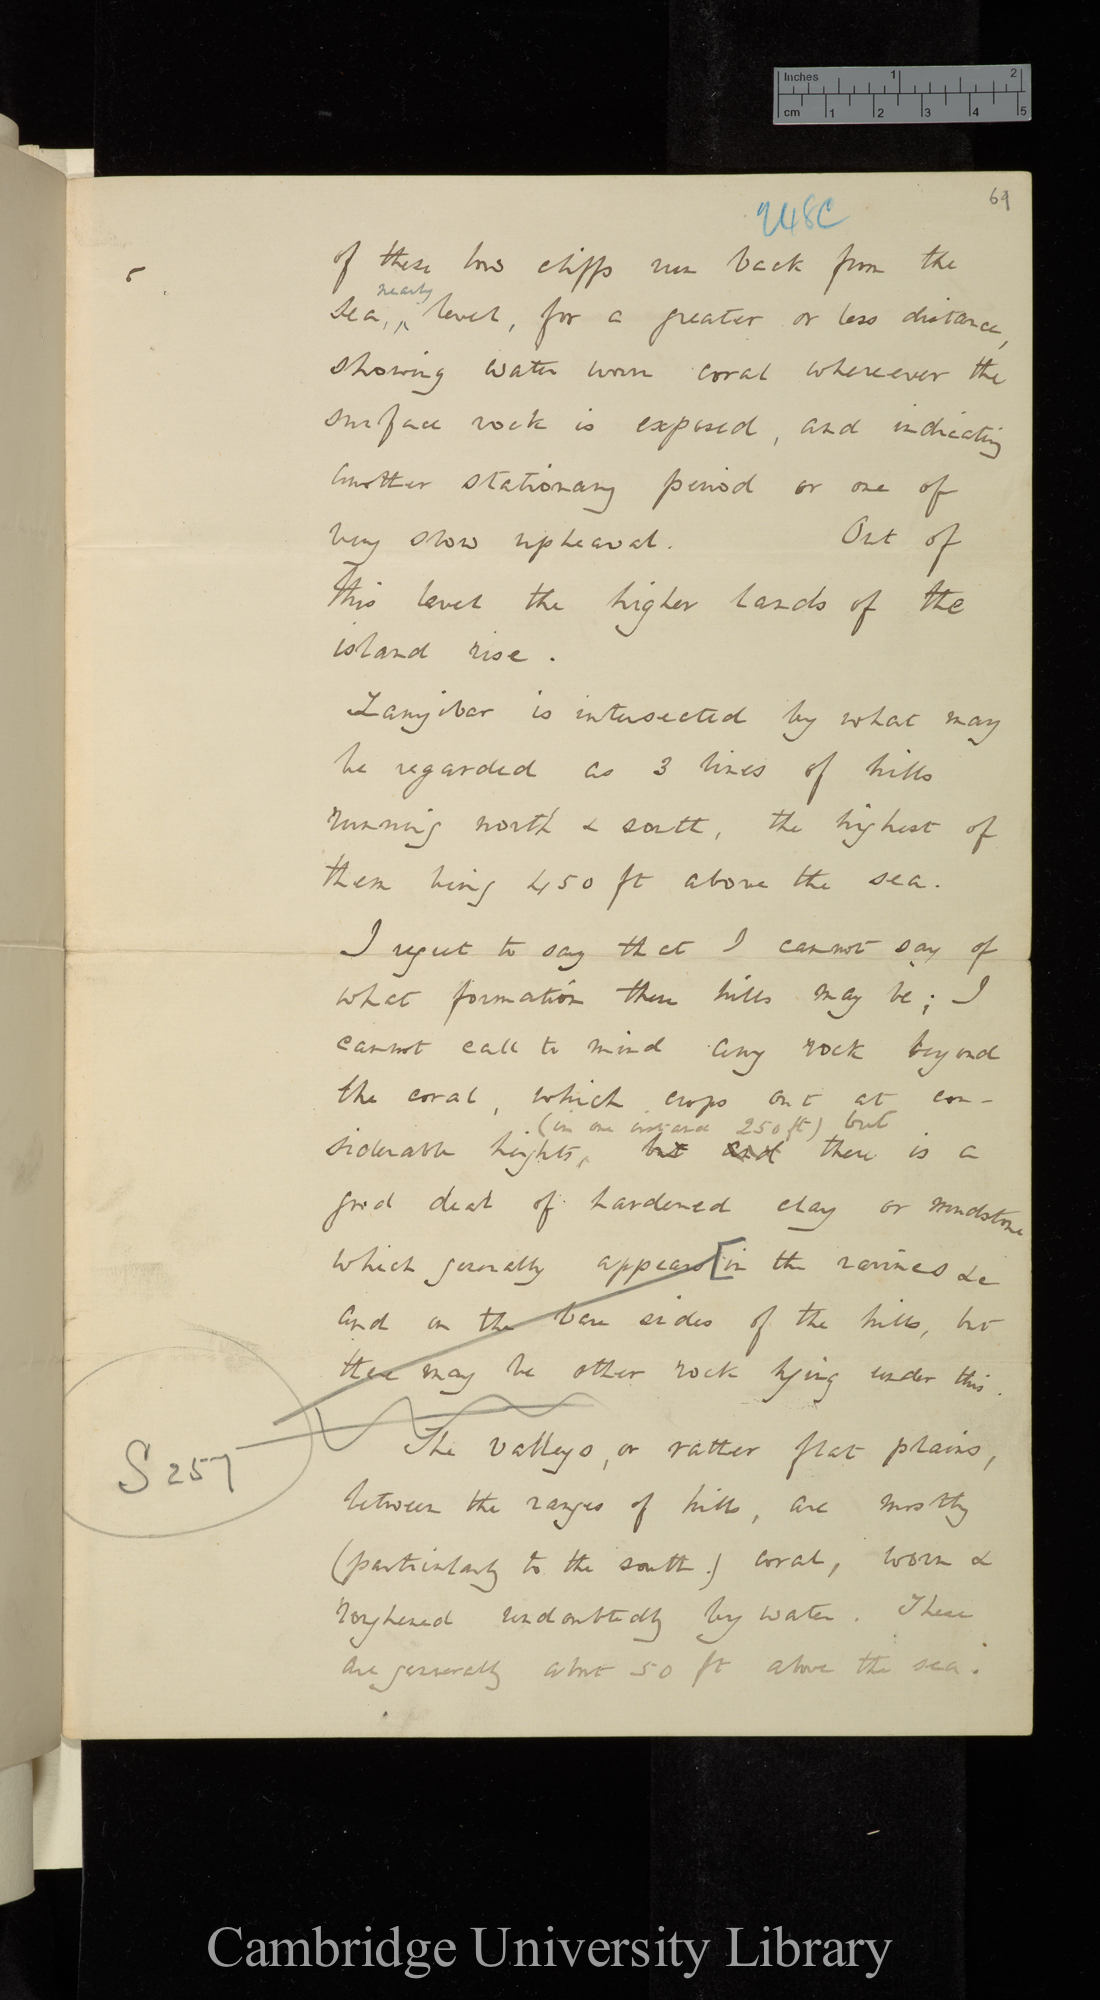 Inches 1 2
cm 1 2 3 4 5
69
248C
5
of these low cliffs run back from the
nearly
sea, ^ level, for a greater or less distance,
showing water worn coral whereever the
surface rock is exposed, and indicating
another stationary period or one of
very slow upheaval. Out of
this level the higher lands of the
island rise.
Zanzibar is intersected by what may
be regarded as 3 lines of hills
running north & south, the highest of
them being 450 ft above the sea.
I regret to say that I cannot say of
what formation these hills may be; I
cannot call to mind any rock beyond
the coral, which crops out at con-
(in one instance 250 ft) but
siderable heights, ^ but and there is a
good deal of hardened clay or mudstone
which generally appears [in the ravines &c
and on the bare sides of the hills, but
there may be other rock lying under this.
S 257
The valleys, or rather flat plains,
between the ranges of hills, are mostly
(particularly to the south) coral, worn &
roughened undoubtedly by water. These
are generally about 50 ft above the sea.
Cambridge University Library